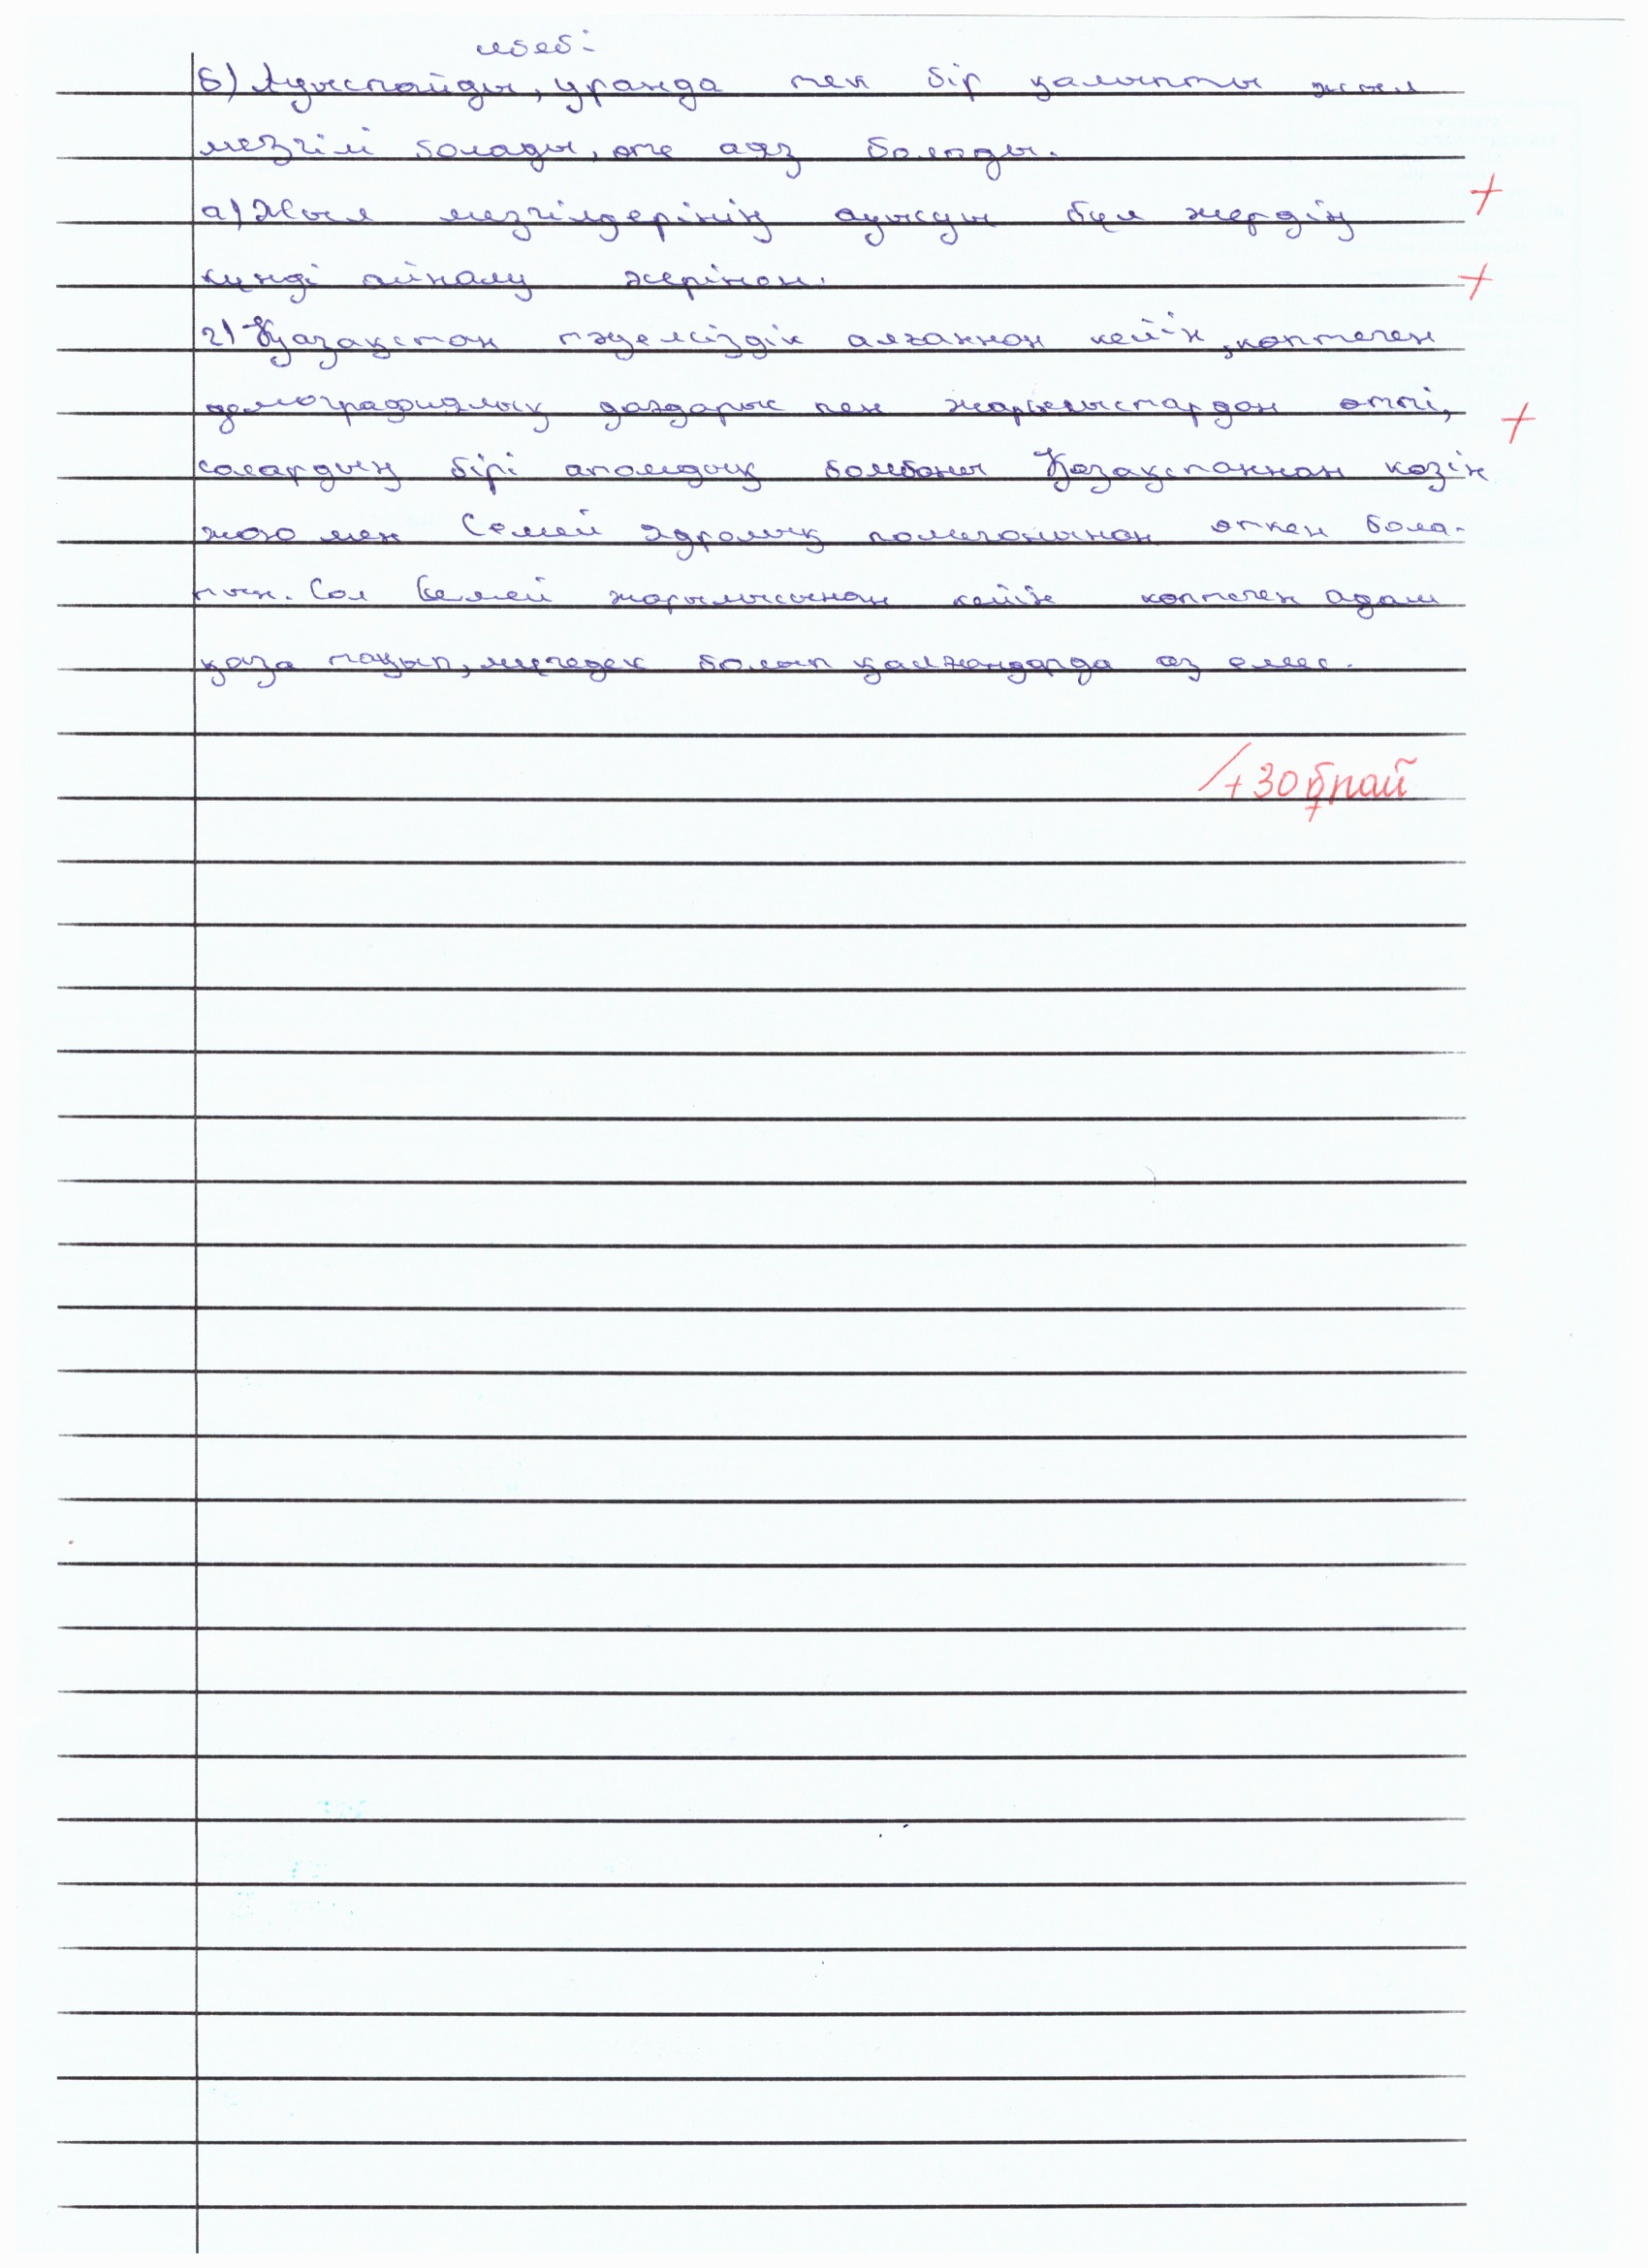 себебі
б) Ауыспайды, уранда тек бір қалыпты жыл
мезгілі болады, өте аяз болады.
а) Жыл мезгілдерінің ауысуы бұл жердің +
күнді айналу жерінен. +
2) Қазақстан тәуелсіздік алғаннан кейін, көптеген
демографиялық дағдарыс пен жарылыстардан өтті, +
солардың бірі атомдық бомбаны Қазақстаннан көзін
жою мен Семей ядролық полигонынан өткен бола-
тын. Сол Семей жарылысынан кейін көптеген адам
қаза тауып, мүгедек болып қалғандарда аз емес.
+30 ұпай